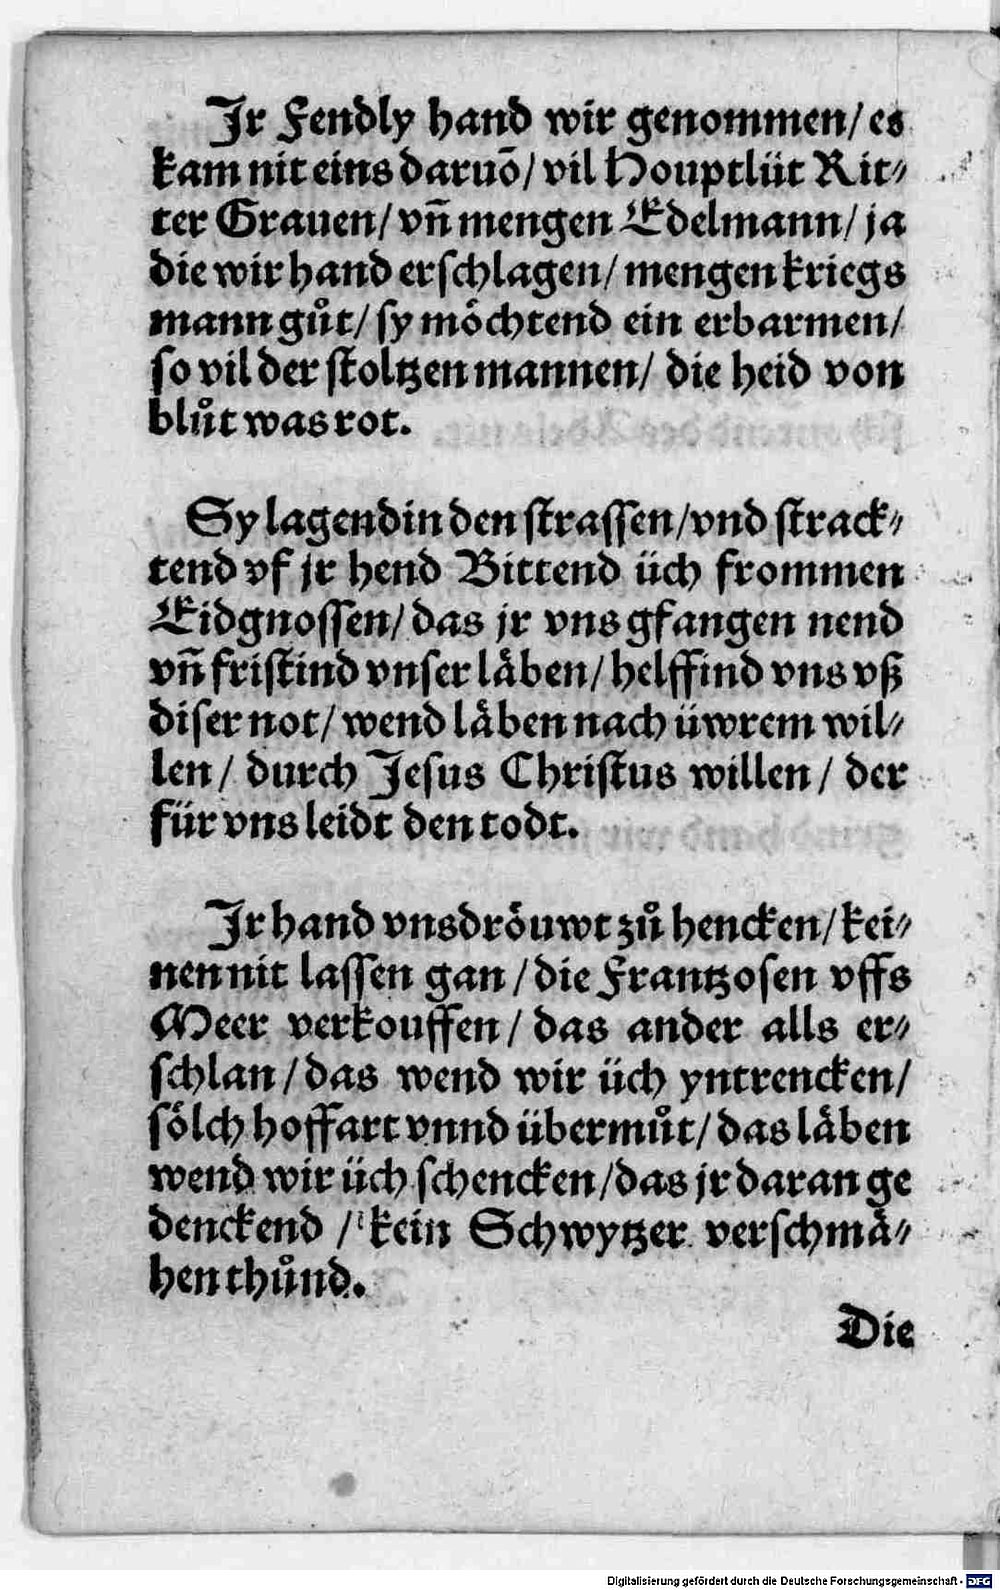 Jr Fendly hand wir genommen/ es
kam nit eins daruō/ vil Houptlüt Rit⸗
ter Grauen/ vn̄ mengen Edelmann/ ja
die wir hand erschlagen/ mengen kriegs
mann gůt/ sy möchtend ein erbarmen/
so vil der stoltzen mannen/ die heid von
blůt was rot.

Sy lagend in den strassen/ vnd strack⸗
tend vf jr hend Bittend üch frommen
Eidgnossen/ das jr vns gfangen nend
vn̄ fristind vnser läben/ helffind vns vß
diser not/ wend läben nach üwrem wil⸗
len/ durch Jesus Christus willen/ der
für vns leidt den todt.

Jr hand vns dröuwt zů hencken/ kei⸗
nen nit lassen gan/ die Frantzosen vffs
Meer verkouffen/ das ander alls er⸗
schlan/ das wend wir üch yntrencken/
sölch hoffart vnnd übermůt/ das läben
wend wir üch schencken/ das jr daran ge
denckend / kein Schwytzer verschmä⸗
hen thůnd.
Die
Digitalisierung gefördert durch die Deutsche Forschungsgemeinschaft - DFG